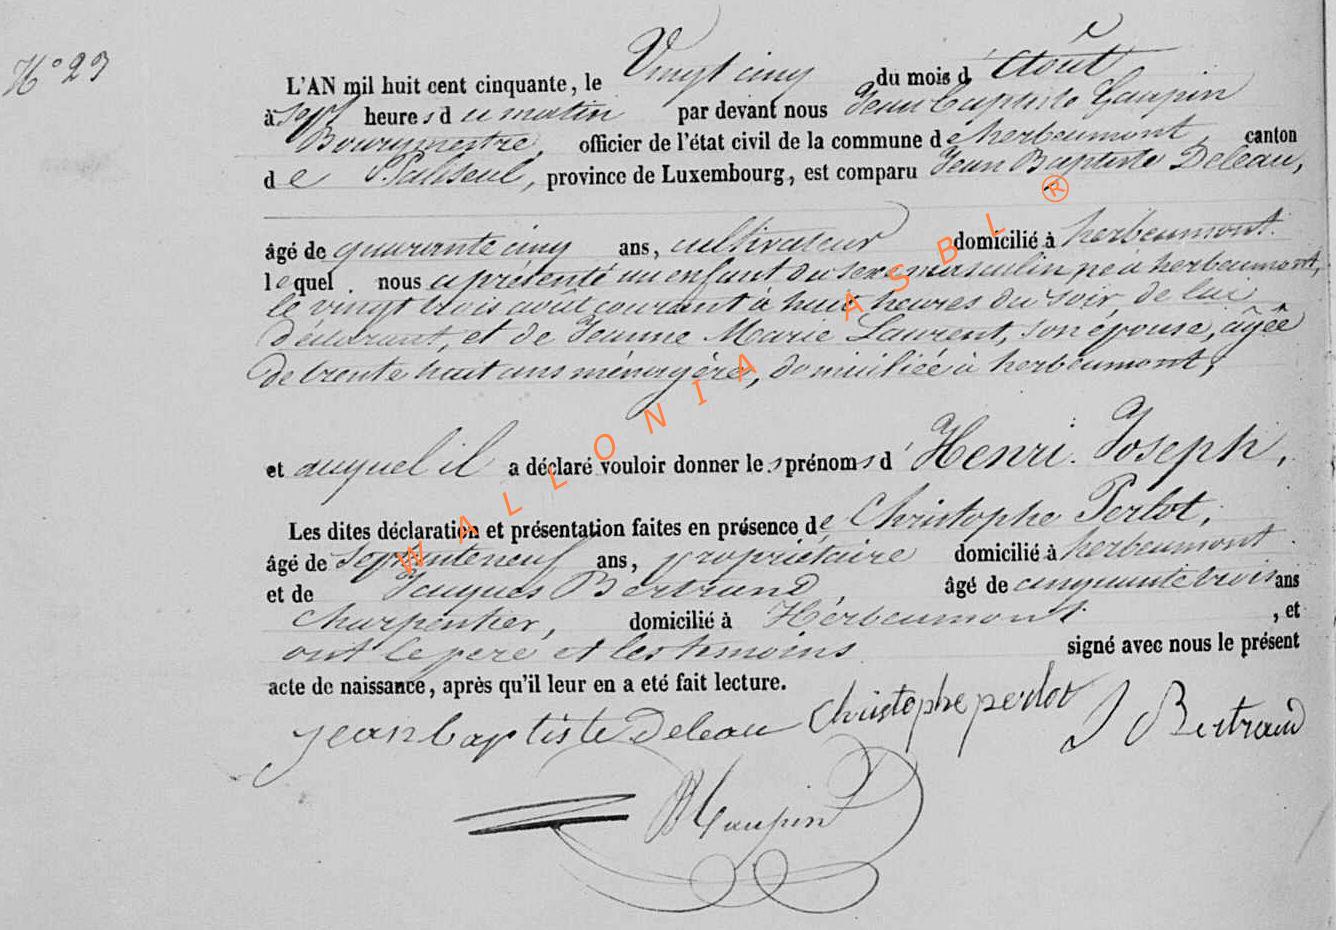 N° 23
L'AN mil huit cent cinquante, le Vingt cinq du mois d' Août
à sept heures du matin par devant nous Jean Baptiste Gaupin
Bourgmestre, officier de l'état civil de la commune de herbeumont, canton
de Paliseul, province de Luxembourg, est comparu Jean Baptiste Deleau,
âgé de quarante cinq ans, cultivateur domicilié à herbeumont.
lequel nous a présenté un enfant du sexe masculin né à herbeumont,
le vingt trois août courant à huit heures du soir de lui
déclarant, et de Jeanne Marie Laurent, son épouse, âgée
de trente huit ans ménagère, domiciliée à herbeumont,
et auquel il a déclaré vouloir donner les prénoms d' Henri. Joseph,
Les dites déclaration et présentation faites en présence de Christophe Perlot,
âgé de septanteneuf ans, propriétaire domicilié à herbeumont
et de Jacques Bertrand, âgé de cinquante trois ans
charpentier, domicilié à Herbeumont, et
ont le pere et les temoins signé avec nous le présent
acte de naissance, après qu'il leur en a eté fait lecture.
jean baptiste Deleau Christophe perlot J Bertrand
WALLONIA ASBL ®